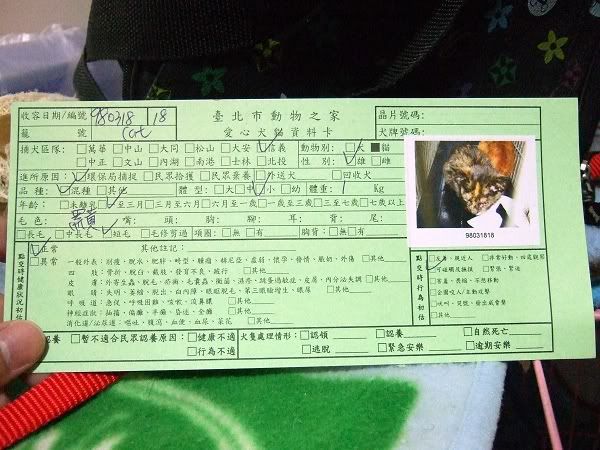 收容日期/編號 980318 18 臺北市動物之家 晶片號碼:
籠 號 Cat 愛心犬貓資料卡 犬牌號碼:
捕犬區隊: □萬華 □中山 □大同 □松山 □大安 □信義 動物別: □犬 ■貓
□中正 □文山 □內湖 □南港 □士林 □北投 性 別: □雄 □雌
進所原因: □環保局捕捉 □民眾拾獲 □民眾棄養 □外送犬 □回收犬
品 種: □混種 □其他 體 型: □大 □中 □小 體重: 1 Kg
年齡: □未離乳 □至三月 □三月至六月 □六月至一歲 □一歲至三歲 □三至七歲 □七歲以上
毛 色: 嘴: 頭: 胸: 腳: 耳: 背: 尾:
□長毛 □中長毛 □短毛 □毛修剪過 項圈: □無 □有 胸背: □無 □有
98031818
點交時健康狀況初估
□正常 其他註記:
□異常 一般外表: 削瘦、脫水、肥胖、畸型、腫瘤、赫尼亞、虛弱、懷孕、發情、脹奶、外傷 □其他
四 肢: 骨折、脫臼、截肢、發育不良、跛行 □其他
皮 膚: 外寄生蟲、脫毛、疥癬、毛囊蟲、黴菌、濕疹、跳蚤過敏症、皮屑、內分泌失調 □其他
眼 睛: 失明、萎縮、脫出、白內障、眼瞼脫毛、第三眼瞼增生、眼屎 □其他
呼 吸 道: 急促、呼吸困難、咳嗽、流鼻膿 □其他
神經症狀: 抽搐、偏癱、半癱、昏迷、全癱 □其他
消化道/泌尿道: 嘔吐、腹瀉、血便、血尿、菜花 □其他
點交時行為初估
□友善、親近人 □非常好動、四處觀察
□可碰觸及撫摸 □緊張、緊迫
□害羞、畏縮、不想移動
□企圖咬人/主動攻擊
□吠叫、哭號、發出威嚇聲
□其他
認養 □暫不適合民眾認養原因: □健康不適 犬隻處理情形: □認領 □認養 □自然死亡
□行為不適 □逃脫 □緊急安樂 □逾期安樂